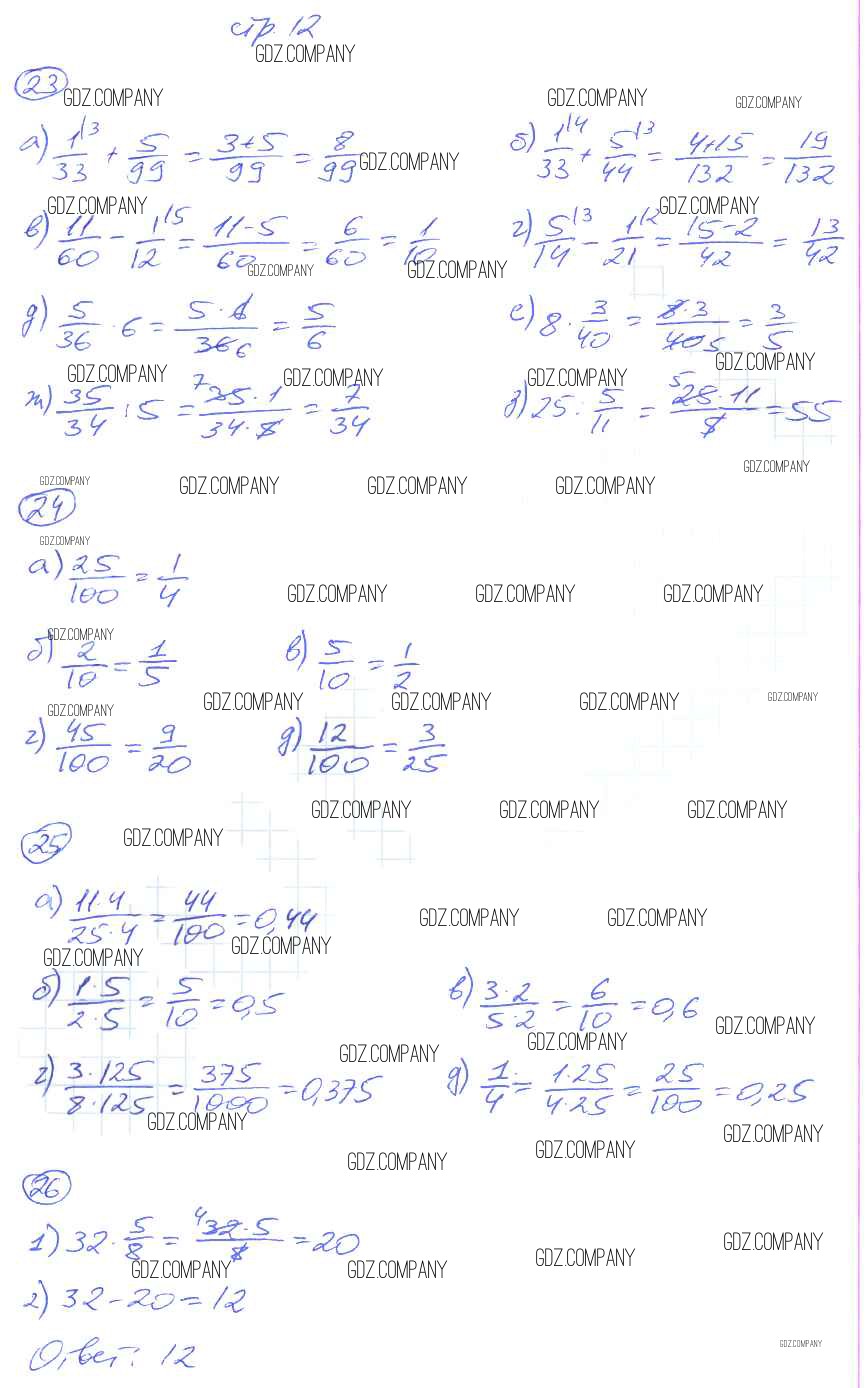 стр. 12
GDZ.COMPANY
23
GDZ.COMPANY GDZ.COMPANY GDZ.COMPANY
а) 1/33 |3 + 5/99 = (3+5)/99 = 8/99 GDZ.COMPANY б) 1/33 |4 + 5/44 |3 = (4+15)/132 = 19/132
GDZ.COMPANY GDZ.COMPANY
в) 11/60 - 1/12 |5 = (11-5)/60 = 6/60 = 1/10 г) 5/14 |3 - 1/21 |2 = (15-2)/42 = 13/42
GDZ.COMPANY GDZ.COMPANY
д) 5/36 · 6 = (5·1)/(36 6) = 5/6 е) 8 · 3/40 = (8·3)/(40 5) = 3/5
GDZ.COMPANY GDZ.COMPANY GDZ.COMPANY GDZ.COMPANY
ж) 35/34 : 5 = (7 35·1)/(34·5) = 7/34 з) 25 : 5/11 = (5 25·11)/5 = 55
GDZ.COMPANY
GDZ.COMPANY GDZ.COMPANY GDZ.COMPANY GDZ.COMPANY
24
GDZ.COMPANY
а) 25/100 = 1/4
GDZ.COMPANY GDZ.COMPANY GDZ.COMPANY
GDZ.COMPANY
б) 2/10 = 1/5 в) 5/10 = 1/2
GDZ.COMPANY GDZ.COMPANY GDZ.COMPANY GDZ.COMPANY GDZ.COMPANY
г) 45/100 = 9/20 д) 12/100 = 3/25
GDZ.COMPANY GDZ.COMPANY GDZ.COMPANY
25 GDZ.COMPANY
а) (11·4)/(25·4) = 44/100 = 0,44 GDZ.COMPANY GDZ.COMPANY
GDZ.COMPANY GDZ.COMPANY
б) (1·5)/(2·5) = 5/10 = 0,5 в) (3·2)/(5·2) = 6/10 = 0,6
GDZ.COMPANY GDZ.COMPANY GDZ.COMPANY
г) (3·125)/(8·125) = 375/1000 = 0,375 д) 1/4 = (1·25)/(4·25) = 25/100 = 0,25
GDZ.COMPANY GDZ.COMPANY
GDZ.COMPANY GDZ.COMPANY
26
1) 32 · 5/8 = (4 32·5)/8 = 20 GDZ.COMPANY GDZ.COMPANY
GDZ.COMPANY GDZ.COMPANY
2) 32-20=12
Ответ: 12 GDZ.COMPANY